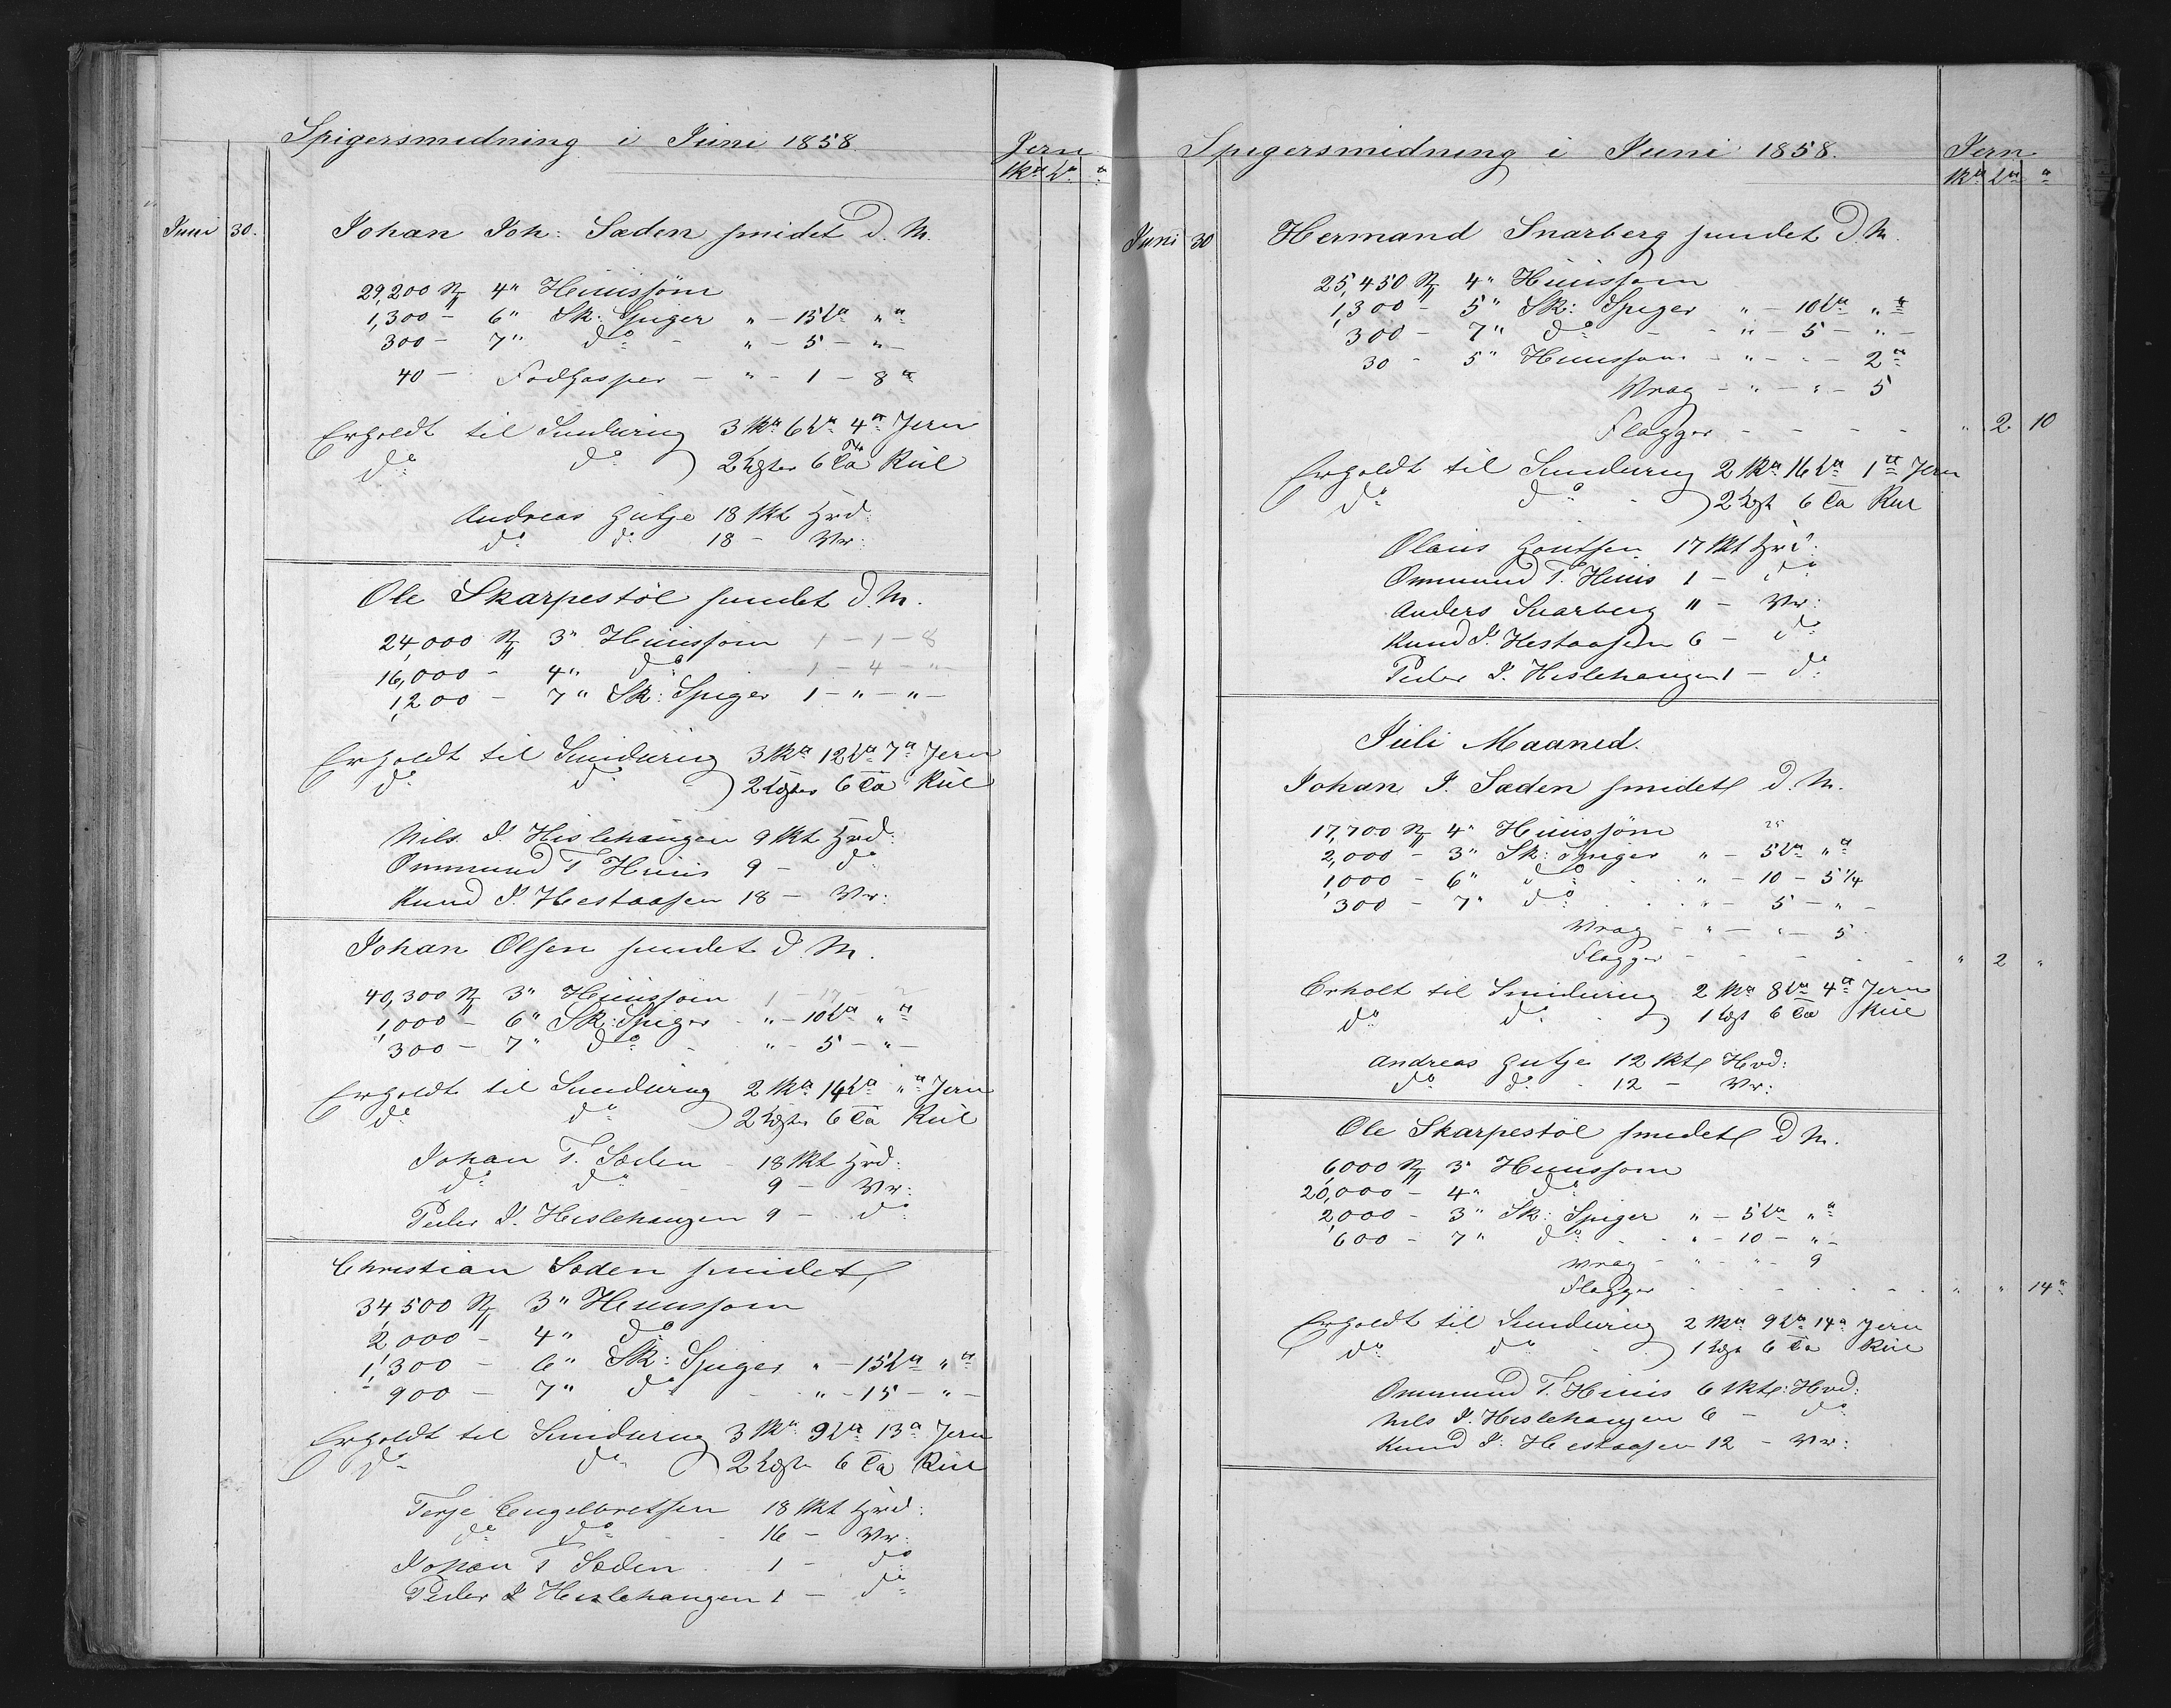 Spigersmidning i Juni 1858.
Jern
Sk℔ L℔ ℔
Juni 30. Johan Joh: Saden smidet d. M.
29,200 St 4" Huussøm
1,300 - 6" Sk: Spiger " - 15 L℔ " ℔
300 - 7" do - " - 5 - " -
40 - - " - 1 - 8 ℔
Erholdt til Smidning 3 Sk℔ 6 L℔ 4 ℔ Jern
do do 2 Lgster 6 Tø Kul
Andreas Gutje 18 Skt Hvd:
do do 18 - Vr:
Ole Skarpestøl smidet d. M.
24,000 St 3" Huussøm 1 - 1 - 8
16,000 - 4" do 1 - 4 - " -
1,200 - 7" Sk: Spiger 1 - " - " -
Erholdt til Smidning 3 Sk℔ 12 L℔ 7 ℔ Jern
do do 2 Lgster 6 Tø Kul
Nils J. Hislehaugen 9 Skt Hvd:
Ommund T. Huus 9 - do
Knud J. Hestaasen 18 - Vr:
Johan Olsen smidet d. M.
40,300 St 3" Huussøm 1 - 17
1,000 - 6" Sk: Spiger " - 10 L℔ " ℔
300 - 7" do - " - 5 - " -
Erholdt til Smidning 2 Sk℔ 14 L℔ " ℔ Jern
do do 2 Lgster 6 Tø Kul
Johan T. Saden 18 Skt Hvd:
do do - 9 - Vr:
Peder J. Hislehaugen 9 - do
Christian Saden smidet
34,500 St 3" Huussøm
2,000 - 4" do
1,300 - 6" Sk: Spiger " - 15 L℔ " ℔
900 - 7" do - " - 15 - " -
Erholdt til Smidning 3 Sk℔ 9 L℔ 13 ℔ Jern
do do 2 Lgster 6 Tø Kul
Terje Engelbretsen 18 Skt Hvd:
do do - 16 - Vr:
Johan T Saden 1 - do
Peder J Hislehaugen 1 - do
Spigersmidning i Juni 1858.
Jern
Sk℔ L℔ ℔
Juni 30 Hermand Snarberg smidet d. M.
25,450 St 4" Huussøm
1,300 - 5" Sk: Spiger " - 10 L℔ " ℔
300 - 7" do - - " - 5 - " -
30 - 5" Huussøm - " - - - 2 ℔
Vrag - " - " - 5
Flagger - - - - " 2 10
Erholdt til Smidning 2 Sk℔ 16 L℔ 1 ℔ Jern
do do 2 Lgst 6 Tø Kul
Olaus Goutsen 17 Skt Hvd:
Ommund T. Huus 1 - do
Anders Snarberg 11 - Vr:
Knud J. Hestaasen 6 - do
Peder J. Hislehaugen 1 - do
Juli Maaned.
Johan J. Saden smidet d. M.
17,700 St 4" Huussøm
2,000 - 3" Sk: Spiger " - 5 L℔ " ℔
1,000 - 6" do - - " - 10 - 5 1/4
300 - 7" do - - " - 5 - " -
Vrag - " - " - 5
Flagger - - - - - " 2 "
Erholt til Smidning 2 Sk℔ 8 L℔ 4 ℔ Jern
do do 1 Lgst 6 Tø Kul
Andreas Gutje 12 Skt Hvd:
do do - 12 - Vr:
Ole Skarpestøl smidet d. M.
6,000 St 3" Huussøm
20,000 - 4" do
2,000 - 3" Sk: Spiger " - 5 L℔ " ℔
600 - 7" do - - " - 10 - " -
Vrag - " - " - 9
Flagger - - - - - - " " 14 ℔
Erholdt til Smidning 2 Sk℔ 9 L℔ 14 ℔ Jern
do do 1 Lgst 6 Tø Kul
Ommund T. Huus 6 Skt: Hvd:
Nils J. Hislehaugen 6 - do
Knud J. Hestaasen 12 - Vr: